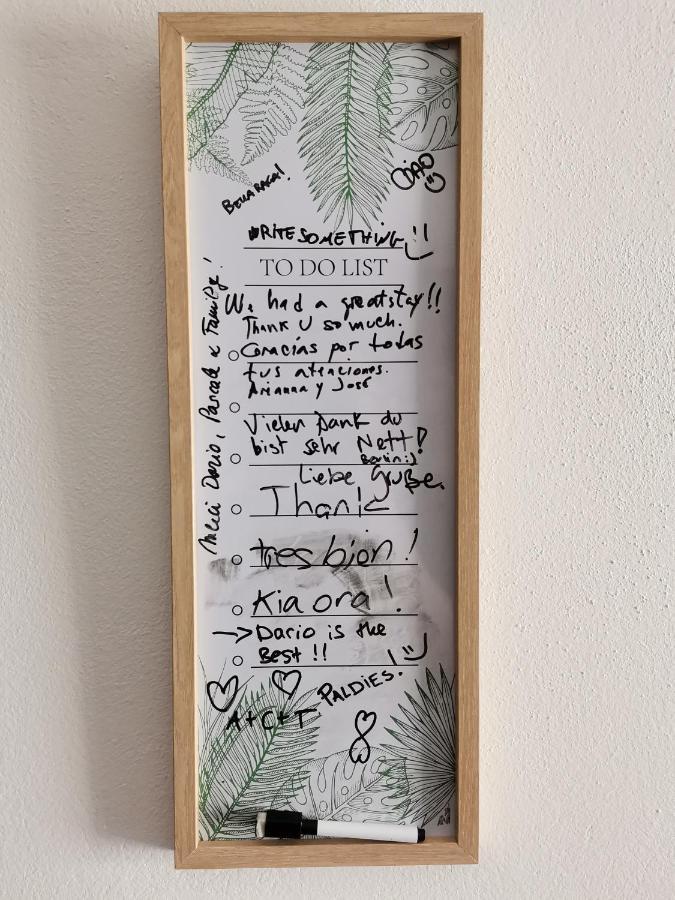 BELLA RAGA!
CIAO
WRITE SOMETHING
TO DO LIST
We had a great stay!!
Thank U so much.
Gracias por todas
tus atenciones.
Arianna y José
Vielen Dank du
bist sehr Nett!
Berlin :)
Liebe Grüße.
Thank
tres bien!
Kia ora!
Dario is the
Best !!
PALDIES.
A+C+T
Merci Dario, Pascale & Family!